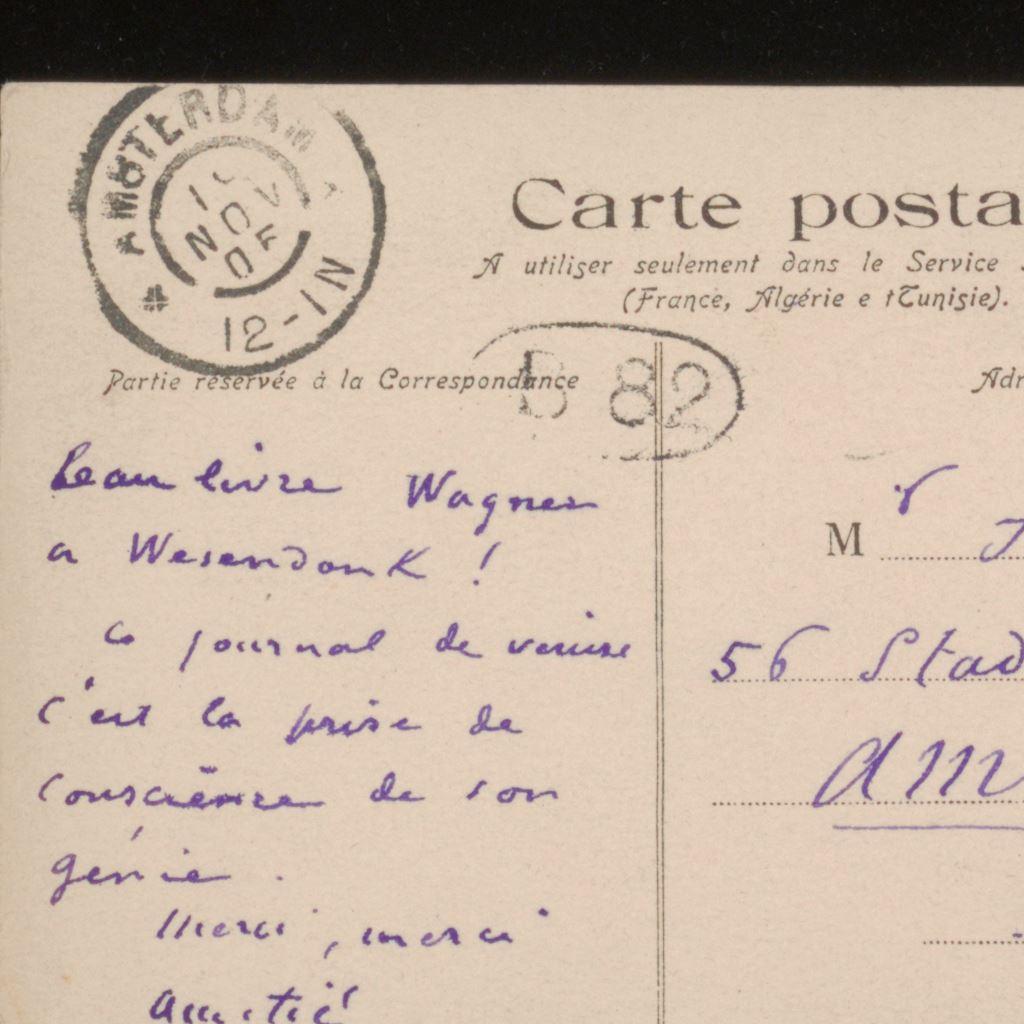 AMSTERDAM
NOV
12-1N
Carte posta
A utiliser seulement dans le Service
(France, Algérie e tTunisie).
B 82
Partie réservée à la Correspondance
Adr
beau livre Wagner
a Wesendonk !
ce journal de venise
c'est la prise de
conscience de son
génie.
merci, merci
amitié
M r J
56 Stad
am